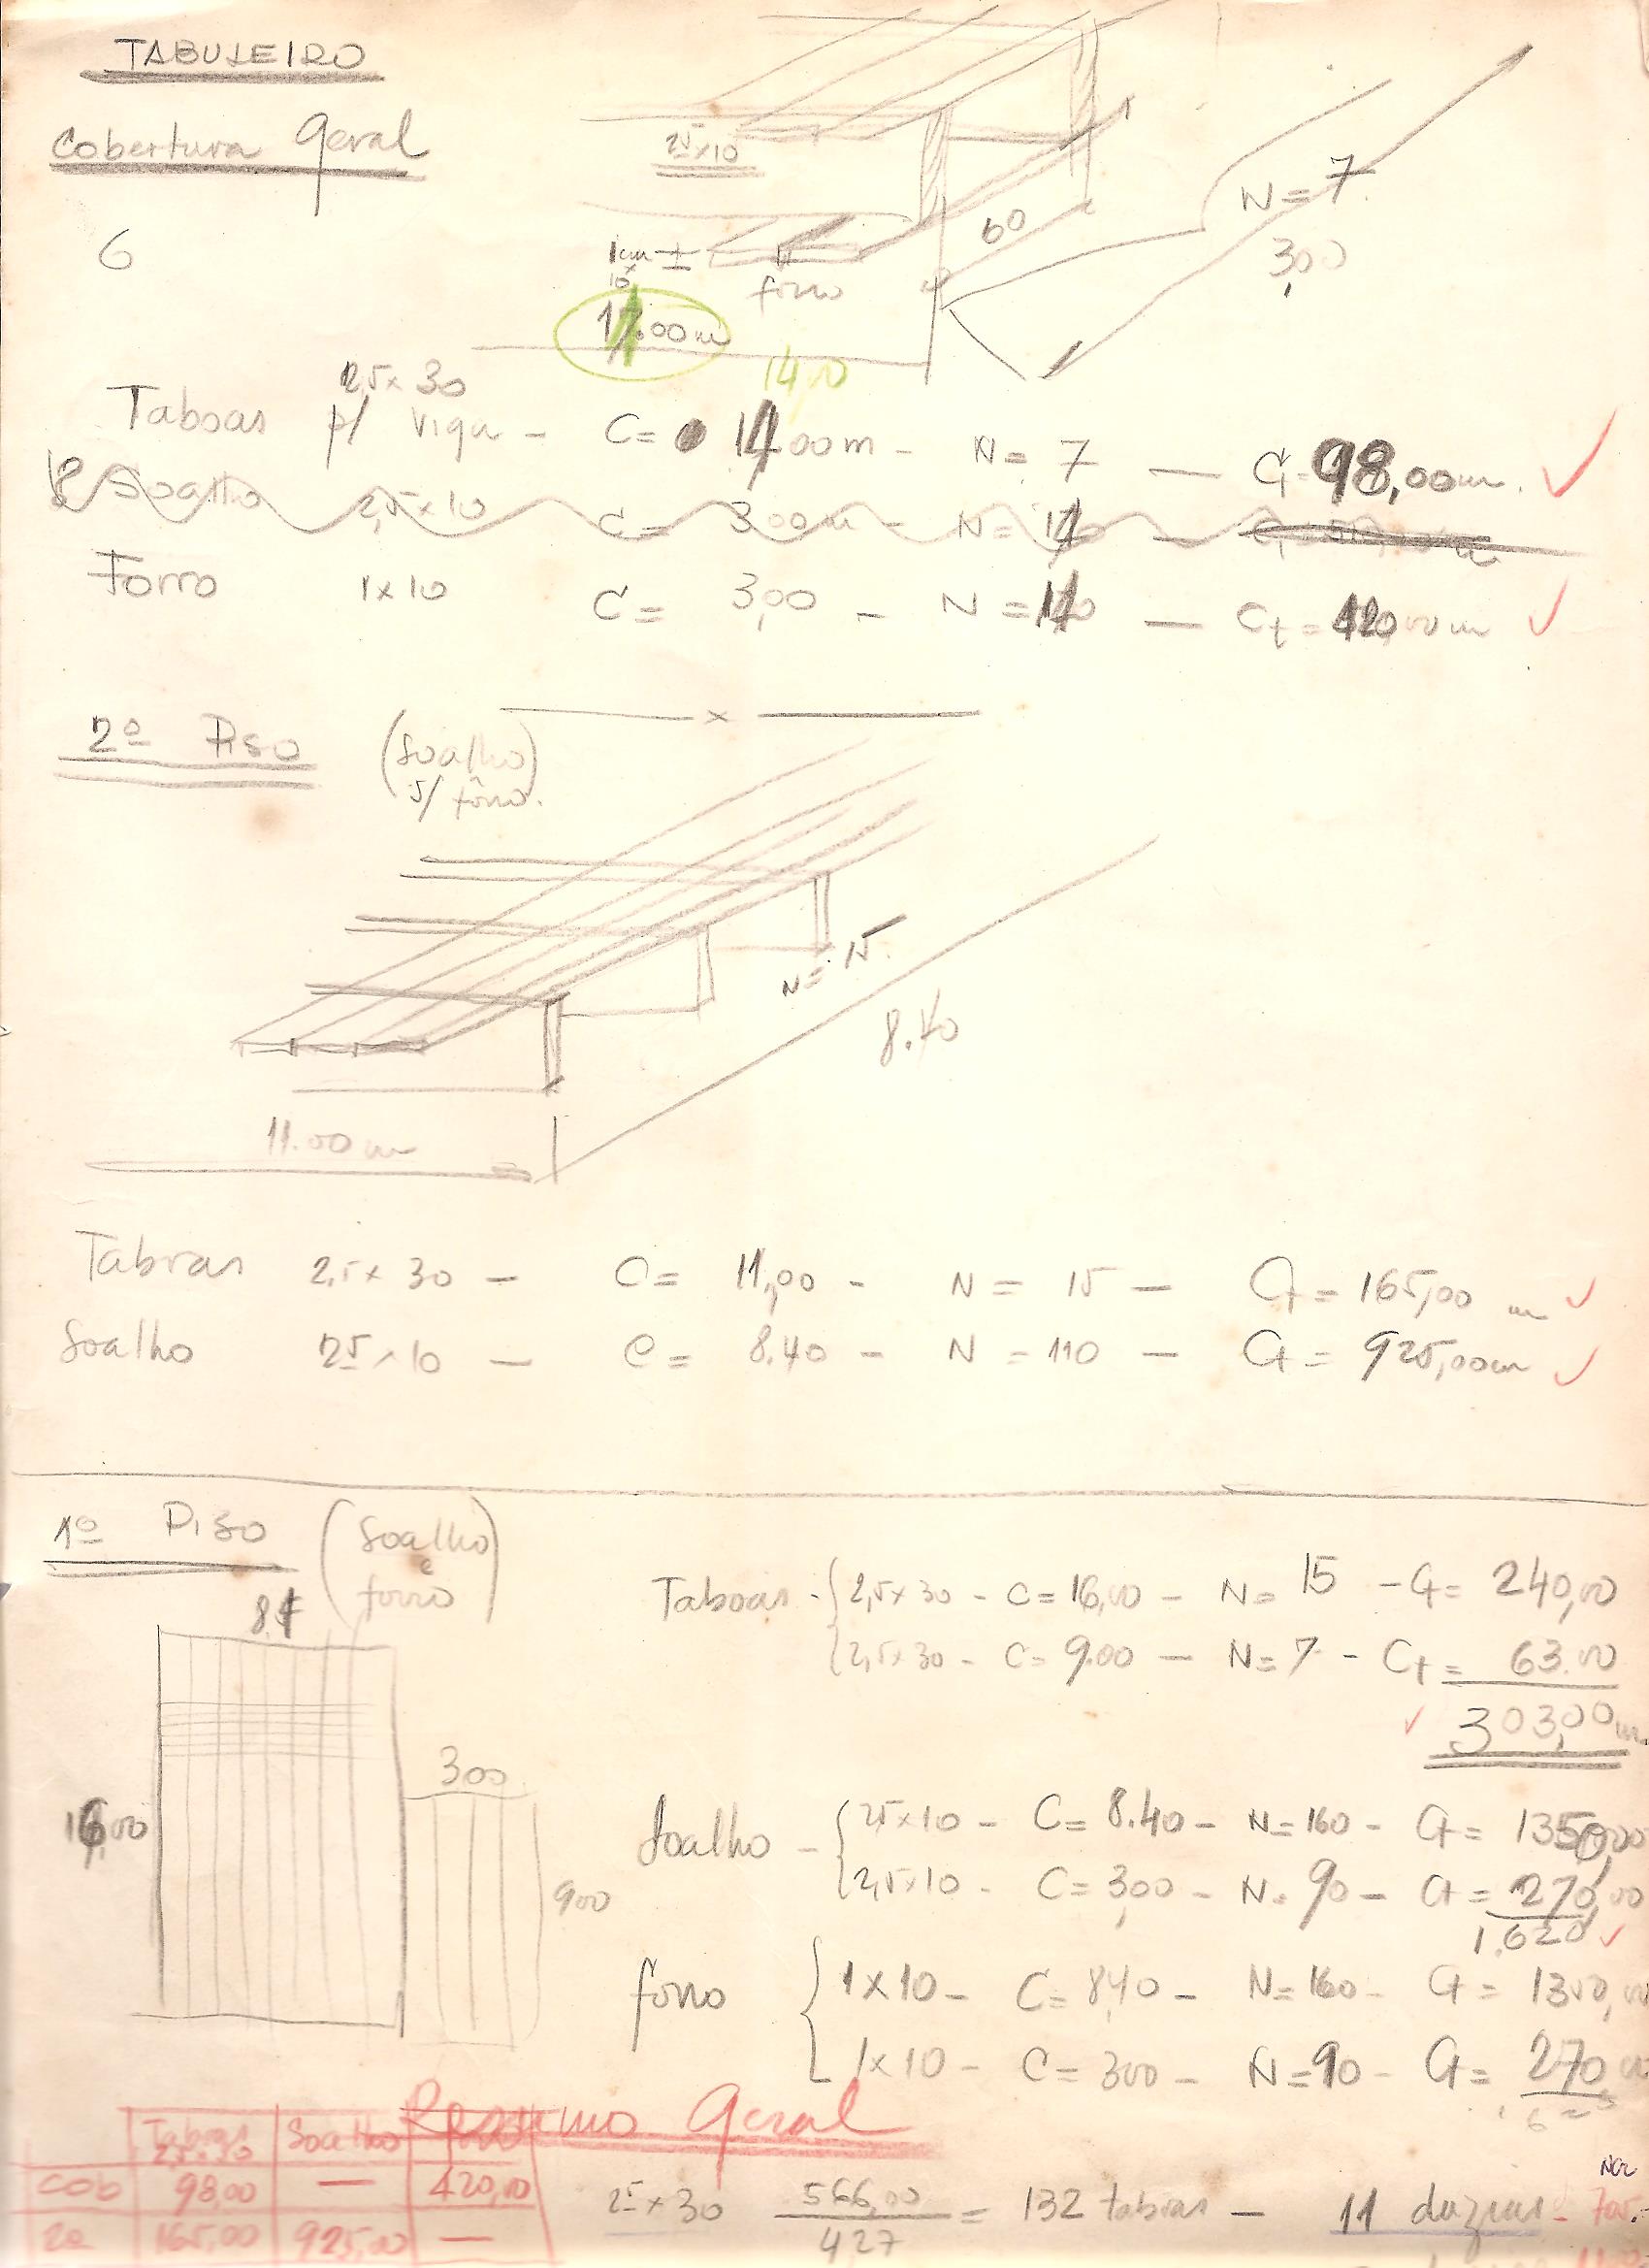 TABULEIRO
Cobertura Geral
25x10
N = 7
3,00
60
6
1cm
x
10
forro
17.00m
14,00
2,5x30
Taboas p/ viga - C= 14.00m - N= 7 — Ct= 98,00m.
Soalho 2,5x10 C= 3.00m - N=
Forro 1x10 C= 3,00 - N = 140 — Ct = 420,00m
x
2º Piso (Soalho
s/ fôrro.)
N= 15
8.40
11.00m
Taboas 2,5x30 - C= 11,00 - N = 15 — Ct = 165,00 m
Soalho 25x10 — C = 8.40 - N = 110 — Ct = 925,00m
1º Piso (Soalho
e
forro)
8.4
16,00
300
900
Taboas - 2,5x30 - C= 16,00 - N= 15 - Ct= 240,00
2,5x30 - C= 9.00 — N= 7 - Ct = 63.00
303,00m
Soalho - 25x10 - C= 8.40 - N=160 - Ct= 1350,00
2,5x10 - C= 3,00 - N= 90 - Ct = 270,00
1.620
forro 1x10 - C= 8,40 - N=160 - Ct = 1350,00
1x10 - C= 300 - N=90 - Ct= 270,00
Resumo Geral
Taboas
25x30 Soalho forro
Cob 98,00 — 420,00
2º 165,00 925,00 —
25x30 566,00 = 132 taboas — 11 duzias - 705.-
427